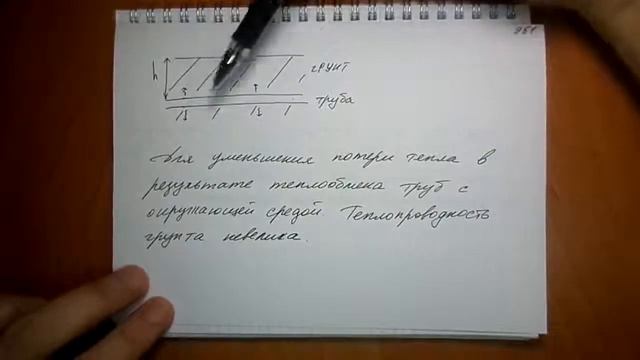 951
h
грунт
труба
Для уменьшения потери тепла в
результате теплообмена труб с
окружающей средой. Теплопроводность
грунта невелика.